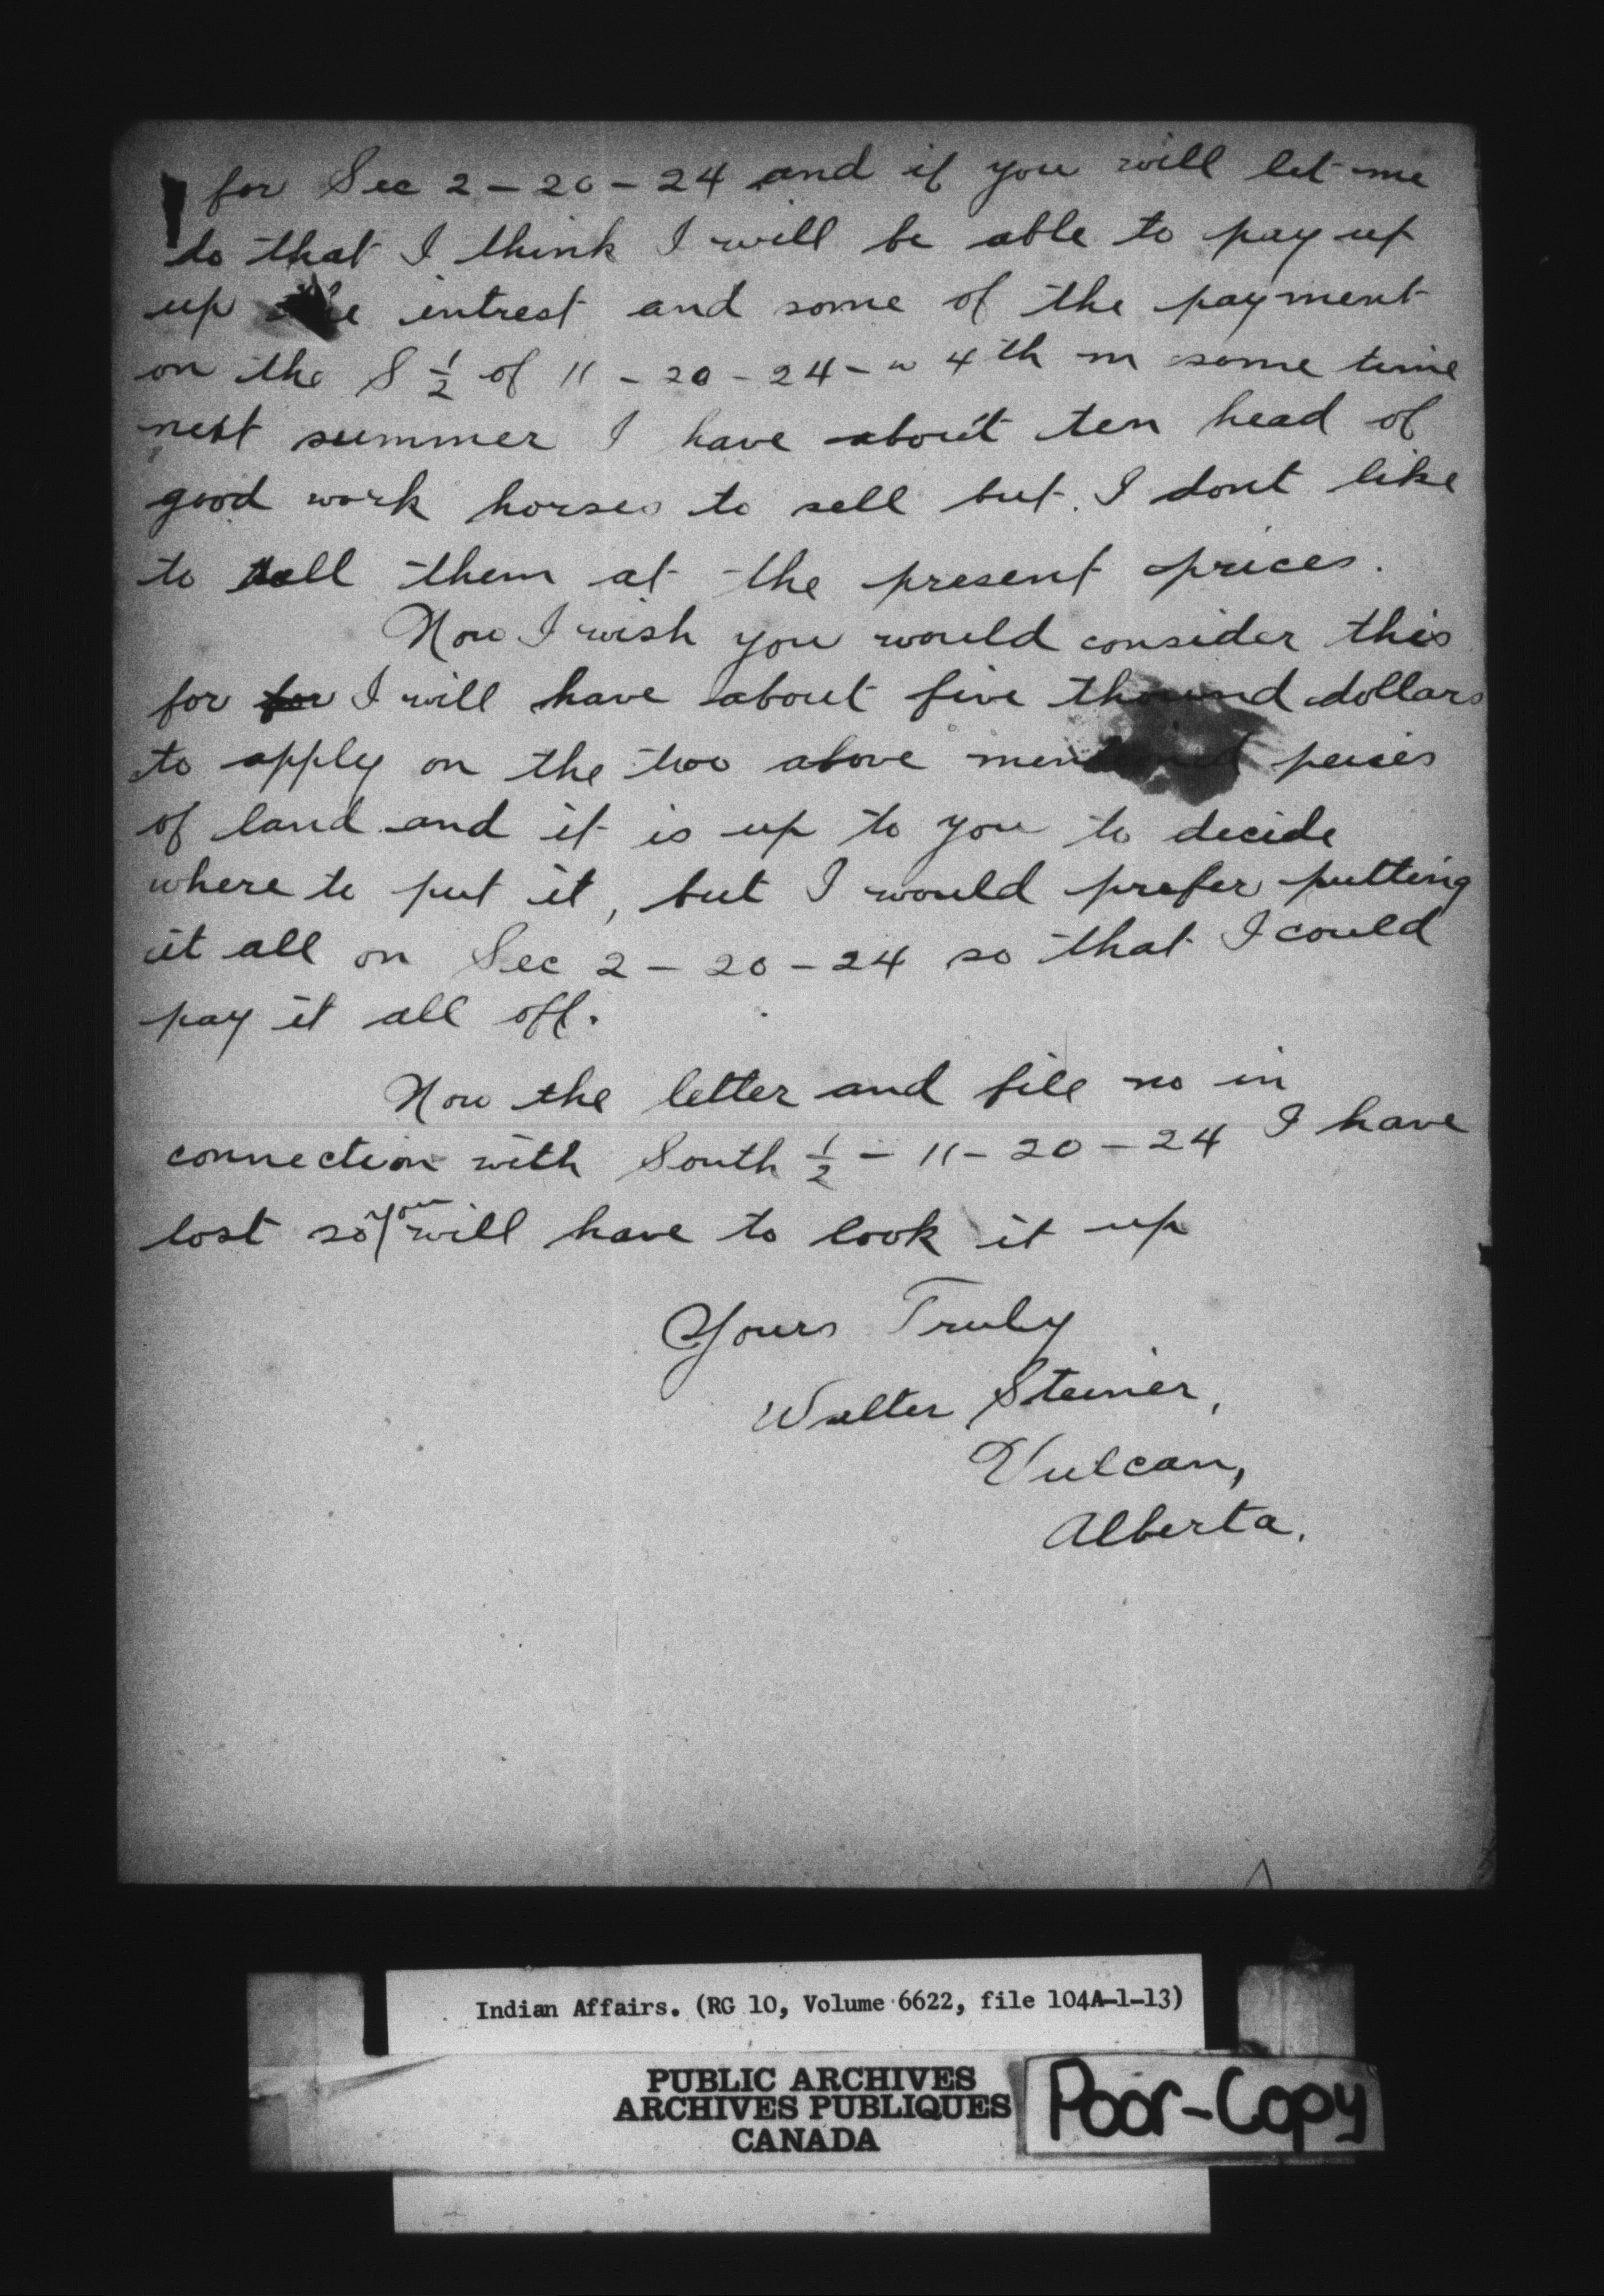 for Sec 2 - 20 - 24 and if you will let me
do that I think I will be able to pay up
up the intrest and some of the payment
on the S 1/2 of 11 - 20 - 24 - w 4th m some time
next summer I have about ten head of
good work horses to sell but I dont like
to sell them at the present prices.
Now I wish you would consider this
for for I will have about five dollars
to apply on the two above mentioned peices
of land and it is up to you to decide
where to put it, but I would prefer putting
it all on Sec 2 - 20 - 24 so that I could
pay it all off.
Now the letter and file no in
connection with South 1/2 - 11 - 20 - 24 I have
lost so you will have to look it up
Yours Truly
Walter Steiner,
Vulcan,
Alberta.
Indian Affairs. (RG 10, Volume 6622, file 104A-1-13)
PUBLIC ARCHIVES
ARCHIVES PUBLIQUES
CANADA
Poor-Copy